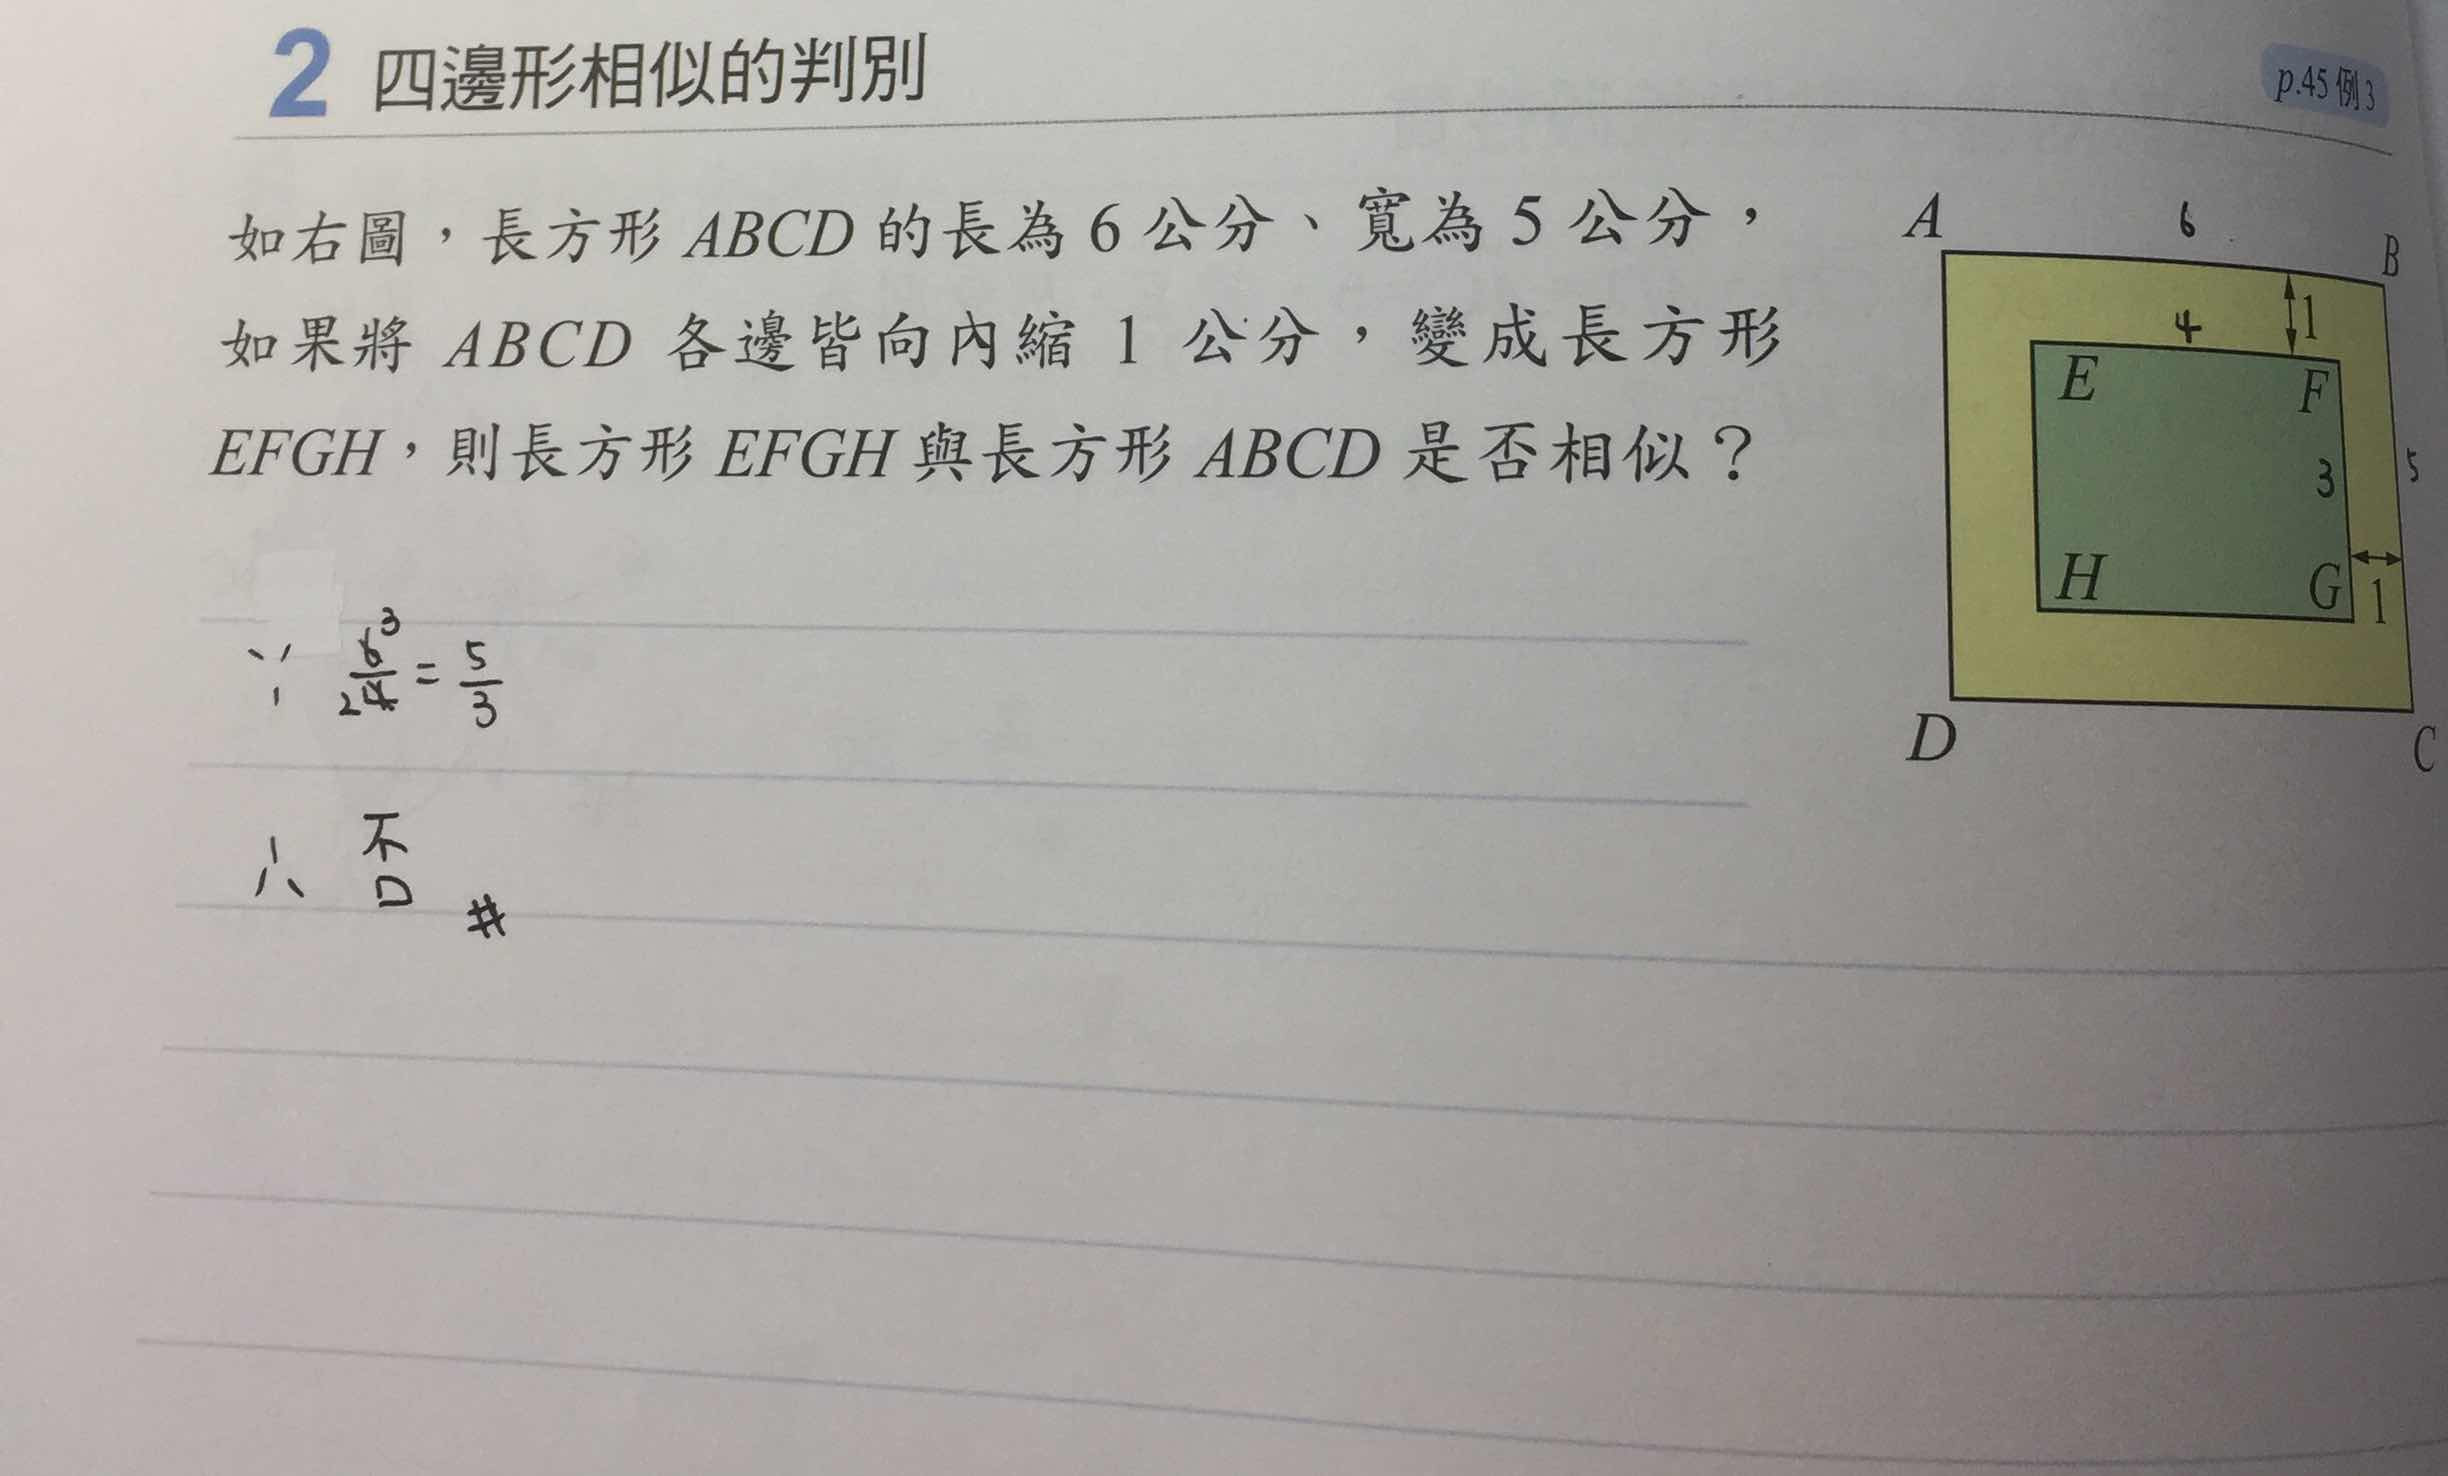 2 四邊形相似的判別
p.45 例3
如右圖，長方形 ABCD 的長為 6 公分、寬為 5 公分，
如果將 ABCD 各邊皆向內縮 1 公分，變成長方形
EFGH，則長方形 EFGH 與長方形 ABCD 是否相似？
A 6 B
1
4
E F
3 5
H G 1
D C
∵ 6 3 / 2 4 = 5/3
∴ 否 #